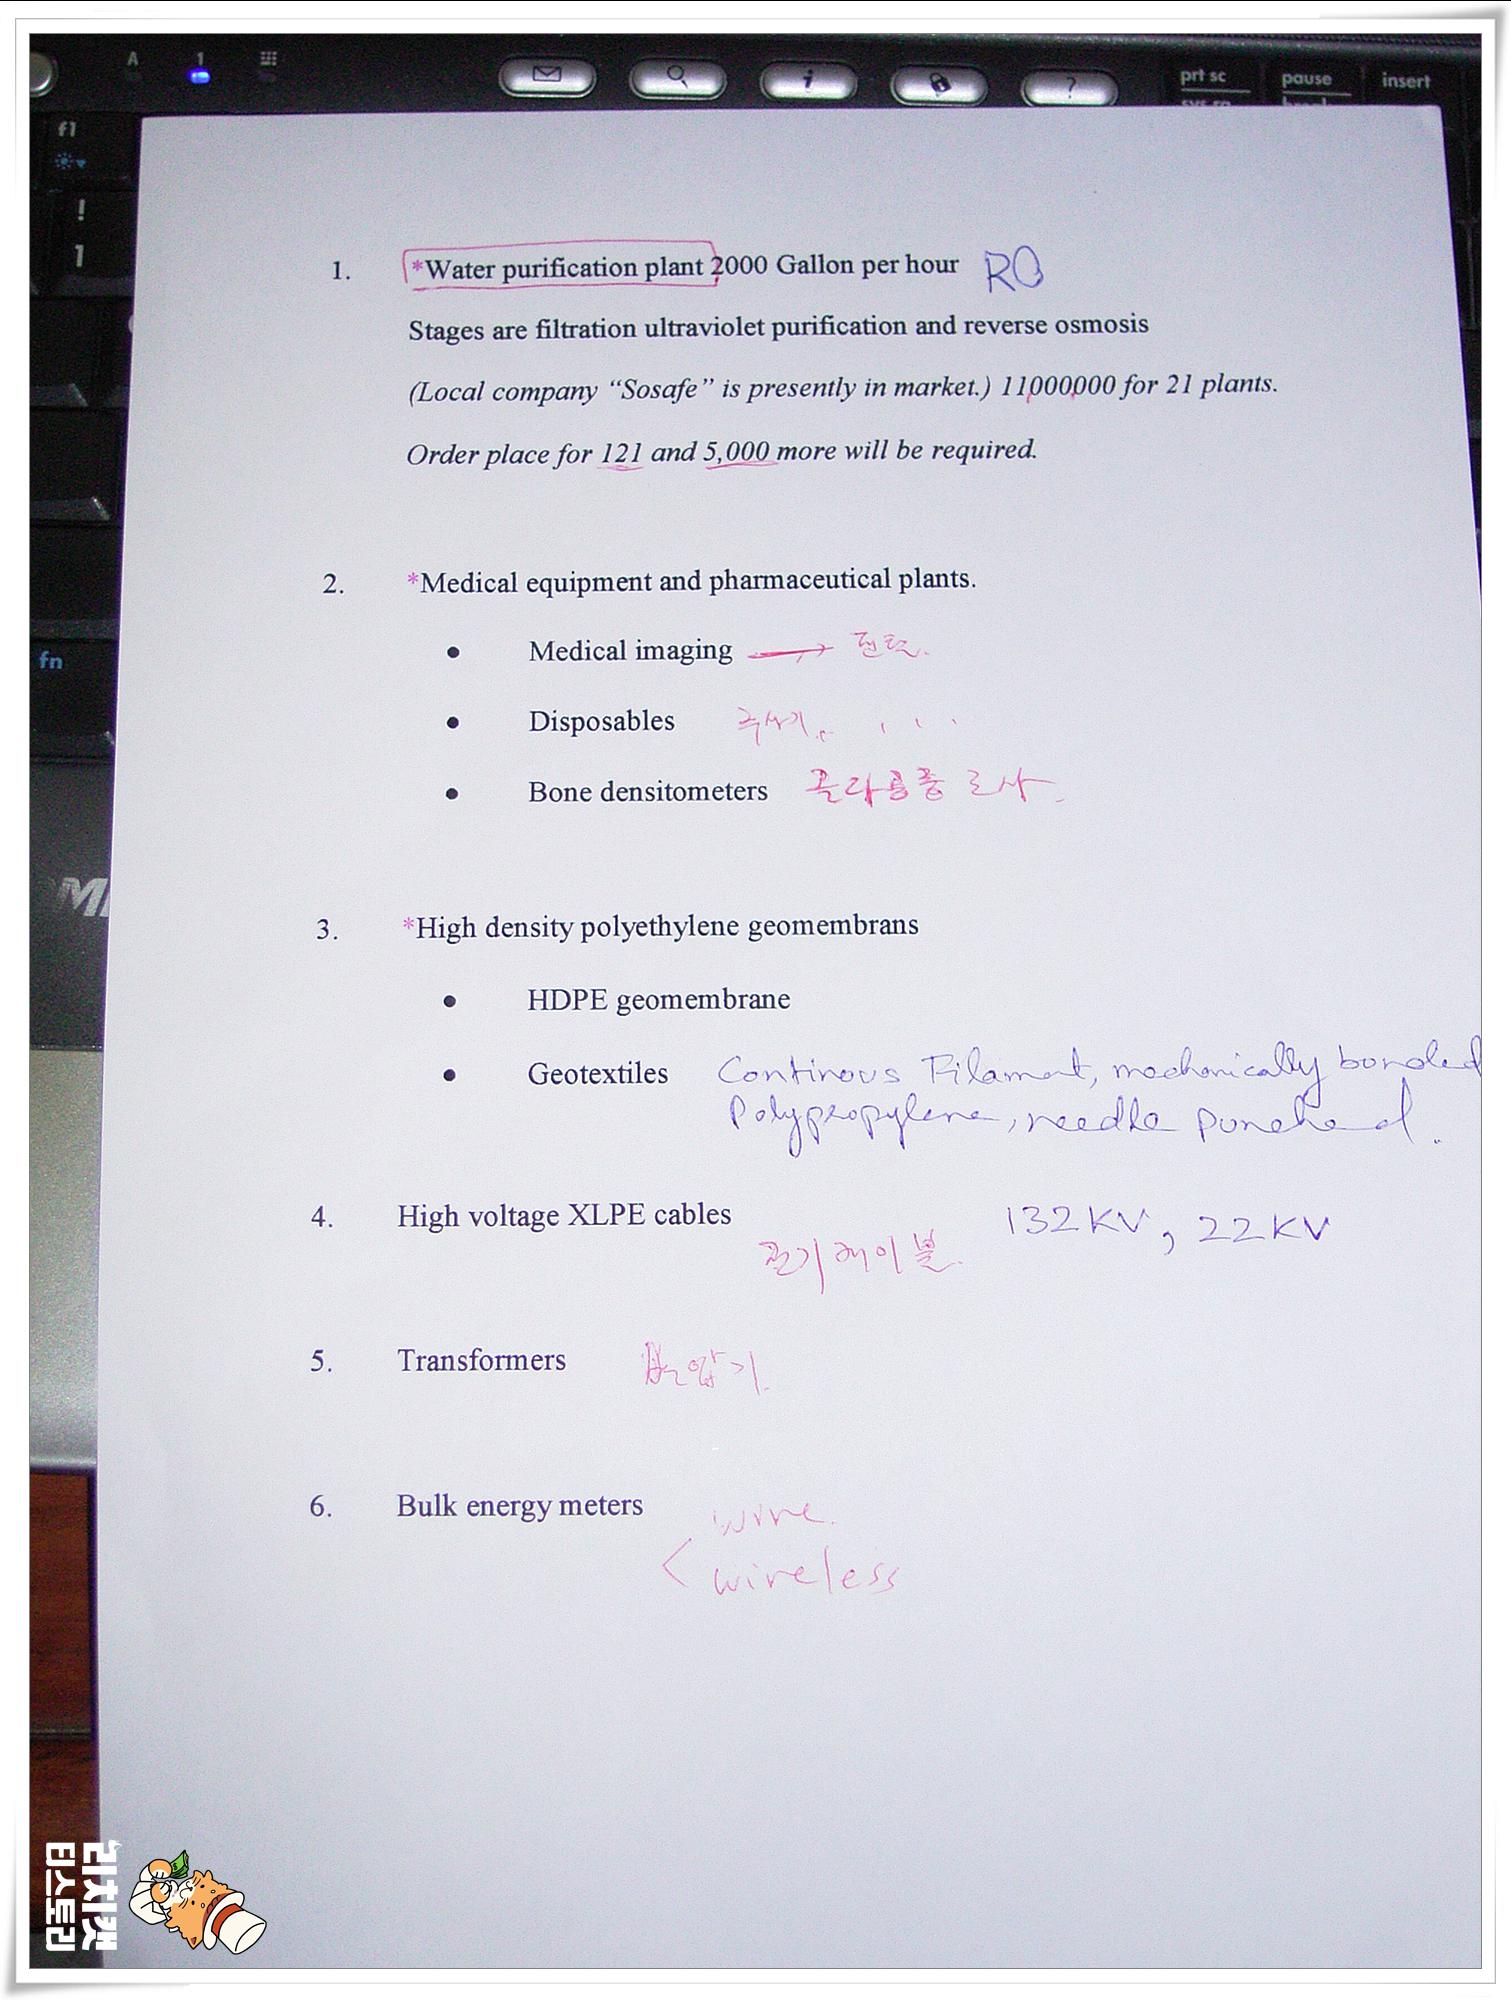 A 1
prt sc pause insert
f1
!
1
fn
1. *Water purification plant 2000 Gallon per hour RO
Stages are filtration ultraviolet purification and reverse osmosis
(Local company “Sosafe” is presently in market.) 11000000 for 21 plants.
Order place for 121 and 5,000 more will be required.
2. *Medical equipment and pharmaceutical plants.
• Medical imaging →
• Disposables 주사기
• Bone densitometers 골다공증
3. *High density polyethylene geomembrans
• HDPE geomembrane
• Geotextiles Continous Filament, mechanically bonded
Polypropylene, needle punched.
4. High voltage XLPE cables 132KV, 22KV
전기케이블.
5. Transformers 변압기
6. Bulk energy meters wire.
< wireless
리치캣
티스토리